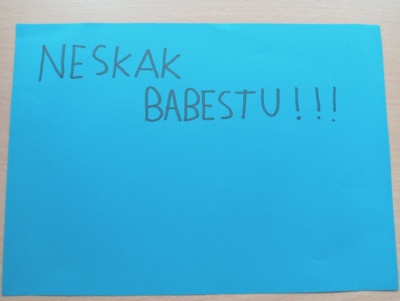 NESKAK
BABESTU!!!